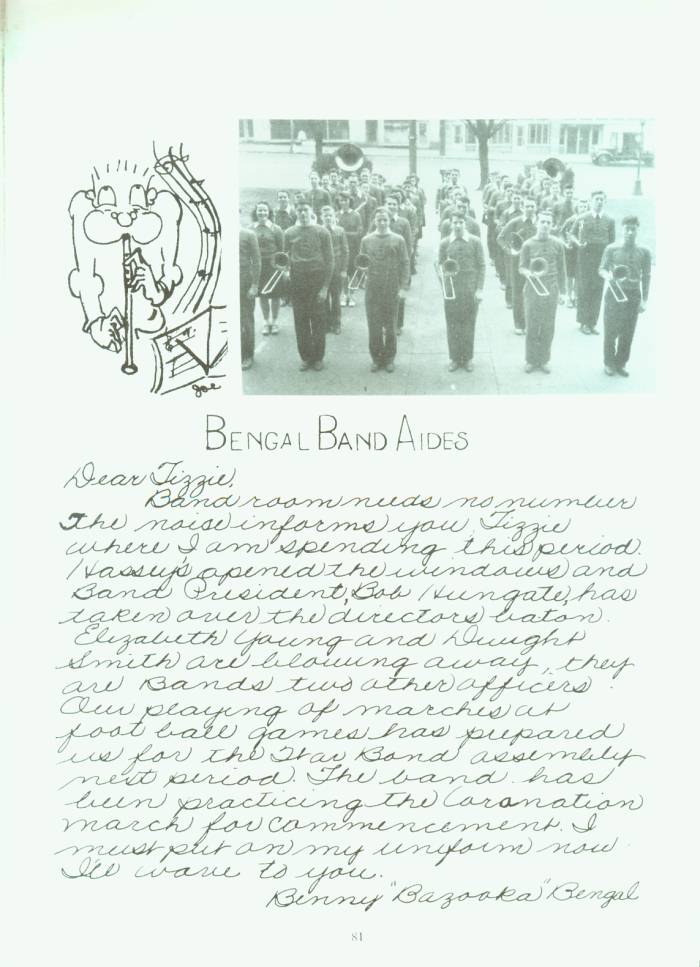 Joe
BENGAL BAND AIDES
Dear Tizzie,
Band room needs no number
The noise informs you Tizzie
where I am spending this period.
Hassey's opened the windows and
Band President, Bob Hungate, has
taken over the directors baton.
Elizabeth Young and Dwight
Smith are blowing away, they
are Bands two other officers.
Our playing of marches at
foot ball games has prepared
us for the War Band assembly
next period. The band has
been practicing the Coronation
march for commencement. I
must put on my uniform now
I'll wave to you.
Benny "Bazooka" Bengal
81